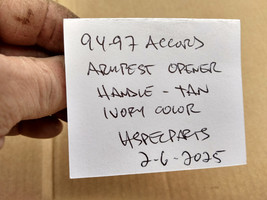 94-97 ACCORD
ARMREST OPENER
HANDLE - TAN
IVORY COLOR
HSPECPARTS
2-6-2025